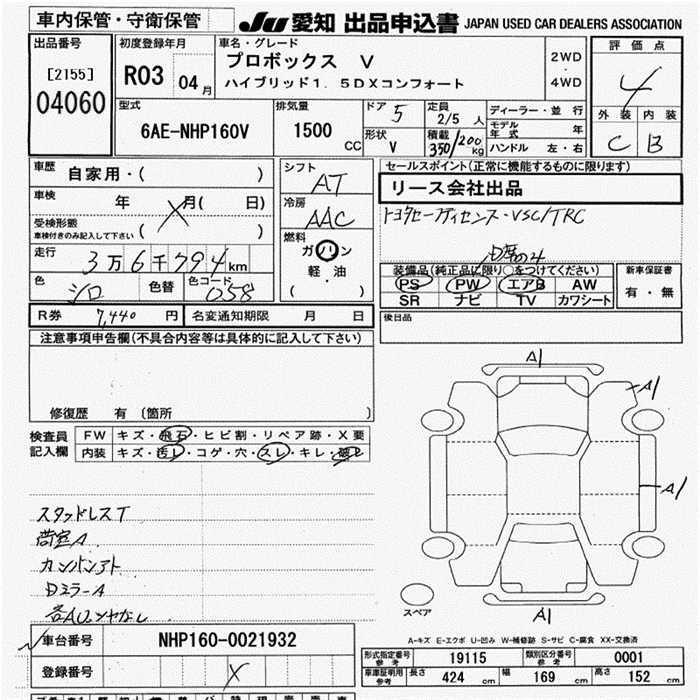 車内保管・守衛保管
JU 愛知 出品申込書 JAPAN USED CAR DEALERS ASSOCIATION
出品番号
[2155]
04060
初度登録年月
R03 04月
車名・グレード
プロボックス V
ハイブリッド1.5DXコンフォート
2WD
・
4WD
評価点
4
外装 内装
C B
型式
6AE-NHP160V
排気量
1500 CC
ドア 5
形状 V
定員 2/5 人
積載 350/200 kg
ディーラー・並行
モデル年式 年
ハンドル 左・右
車歴 自家用・( )
車検 年 X 月( 日)
受検形態
車検付きのみ記入して下さい ( )
走行 3万6千794km
色 シロ 色替 色コード 058
シフト AT
冷房 AAC
燃料
ガソリン
軽・油
( )
セールスポイント(正常に機能するものに限ります)
リース会社出品
トヨタセーフティセンス・VSC/TRC
装備品(純正品に限り○をつけてください)
PS PW エアB AW
SR ナビ TV カワシート
新車保証書
有・無
R券 7,440 円 名変通知期限 月 日
後日品
注意事項申告欄(不具合内容等は具体的に記入して下さい)
修復歴 有(箇所 )
検査員記入欄
FW キズ・飛石・ヒビ割・リペア跡・X要
内装 キズ・汚レ・コゲ・穴・スレ・キレ・破レ
スタッドレスT
荷室A
カンバンアト
DミラーA
A1
A1
A1
A1
スペア
車台番号 NHP160-0021932
登録番号 X
A-キズ E-エクボ U-凹み W-補修跡 S-サビ C-腐食 XX-交換済
形式指定番号参考 19115 類別区分番号参考 0001
車庫証明用参考 長さ 424 cm 幅 169 cm 高さ 152 cm